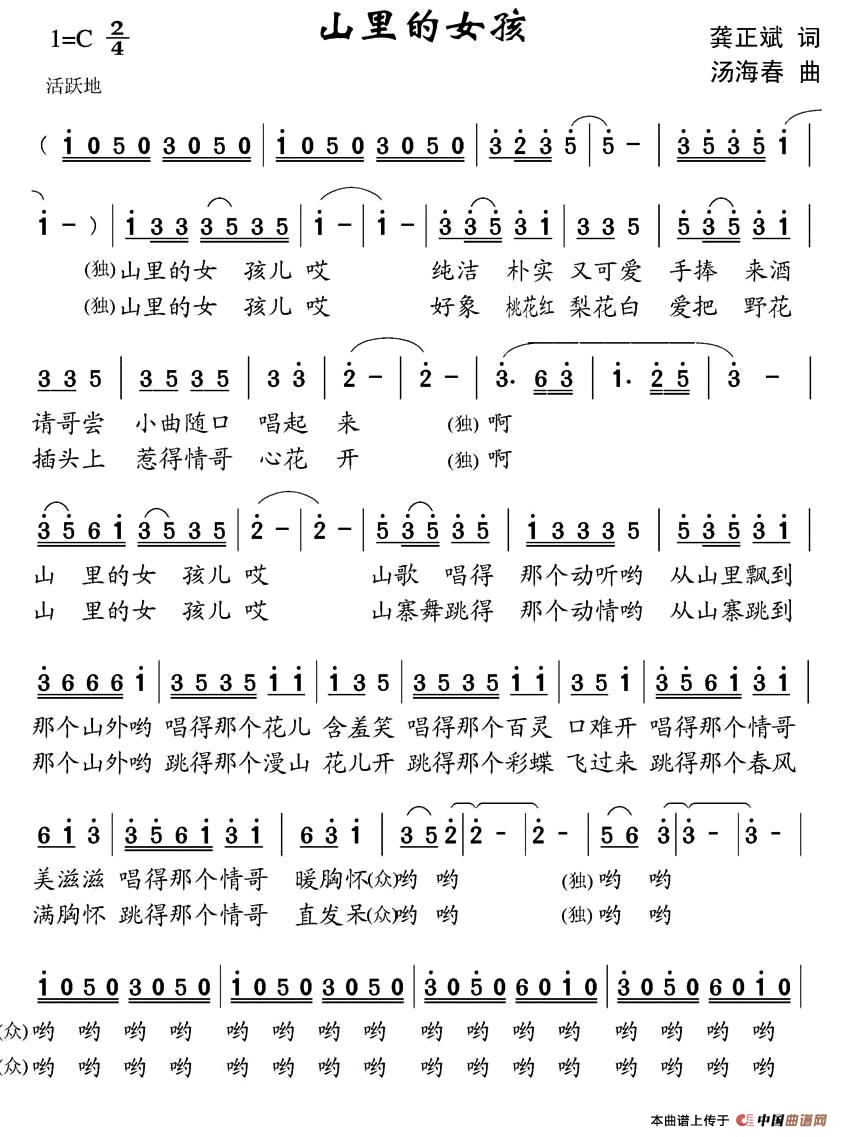 山里的女孩
1=C 2/4
龚正斌 词
汤海春 曲
活跃地
( 1 0 5 0 3 0 5 0 | 1 0 5 0 3 0 5 0 | 3 2 3 5 | 5 - | 3 5 3 5 1 |
1 - ) | 1 3 3 3 5 3 5 | 1 - | 1 - | 3 3 5 3 1 | 3 3 5 | 5 3 5 3 1 |
(独) 山里的女 孩儿 哎 纯洁 朴实 又可爱 手捧 来酒
(独) 山里的女 孩儿 哎 好象 桃花红 梨花白 爱把 野花
3 3 5 | 3 5 3 5 | 3 3 | 2 - | 2 - | 3. 6 3 | 1. 2 5 | 3 - |
请哥尝 小曲随口 唱起 来 (独) 啊
插头上 惹得情哥 心花 开 (独) 啊
3 5 6 1 3 5 3 5 | 2 - | 2 - | 5 3 5 3 5 | 1 3 3 3 5 | 5 3 5 3 1 |
山 里的女 孩儿 哎 山歌 唱得 那个动听哟 从山里飘到
山 里的女 孩儿 哎 山寨舞跳得 那个动情哟 从山寨跳到
3 6 6 6 1 | 3 5 3 5 1 1 | 1 3 5 | 3 5 3 5 1 1 | 3 5 1 | 3 5 6 1 3 1 |
那个山外哟 唱得那个花儿 含羞笑 唱得那个百灵 口难开 唱得那个情哥
那个山外哟 跳得那个漫山 花儿开 跳得那个彩蝶 飞过来 跳得那个春风
6 1 3 | 3 5 6 1 3 1 | 6 3 1 | 3 5 2 | 2 - | 2 - | 5 6 3 | 3 - | 3 - |
美滋滋 唱得那个情哥 暖胸怀(众)哟 哟 (独) 哟 哟
满胸怀 跳得那个情哥 直发呆(众)哟 哟 (独) 哟 哟
1 0 5 0 3 0 5 0 | 1 0 5 0 3 0 5 0 | 3 0 5 0 6 0 1 0 | 3 0 5 0 6 0 1 0 |
(众) 哟 哟 哟 哟 哟 哟 哟 哟 哟 哟 哟 哟 哟 哟 哟 哟
(众) 哟 哟 哟 哟 哟 哟 哟 哟 哟 哟 哟 哟 哟 哟 哟 哟
本曲谱上传于 中国曲谱网